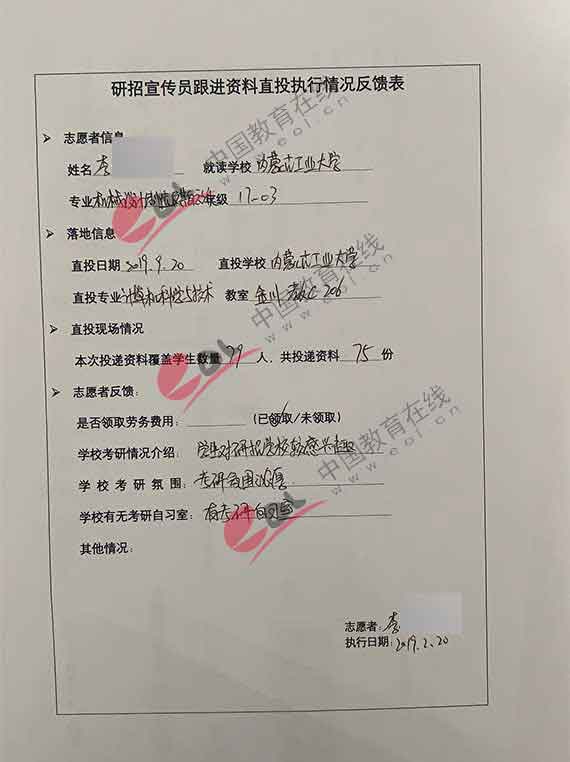 研招宣传员跟进资料直投执行情况反馈表
志愿者信息
姓名 李 就读学校 内蒙古工业大学
专业 机械设计制造及其自动化 年级 17-03
落地信息
直投日期 2019.9.20 直投学校 内蒙古工业大学
直投专业 计算机科学与技术 教室 金川 教C206
直投现场情况
本次投递资料覆盖学生数量 39 人，共投递资料 75 份
志愿者反馈：
是否领取劳务费用： （已领取/未领取）
学校考研情况介绍： 学生对研招学校较感兴趣
学校考研氛围： 考研氛围浓厚
学校有无考研自习室： 有考研自习室
其他情况：
志愿者：李
执行日期：2019.2.20
中国教育在线
www.eol.cn
eol